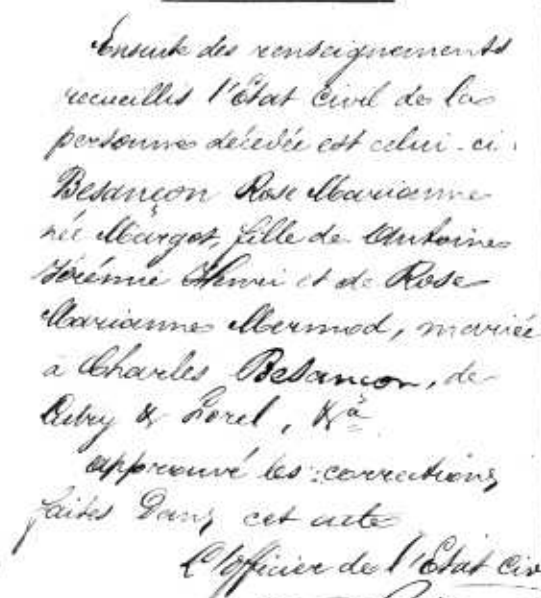 Ensuite des renseignements
recueillis l'Etat civil de la
personne décédée est celui-ci:
Besançon Rose Marianne
née Margot, fille de Antoine
Jérémie Henri et de Rose
Marianne Mermod, mariée
à Charles Besançon, de
&
approuvé les corrections
faites dans cet acte
L'officier de l'Etat Civ